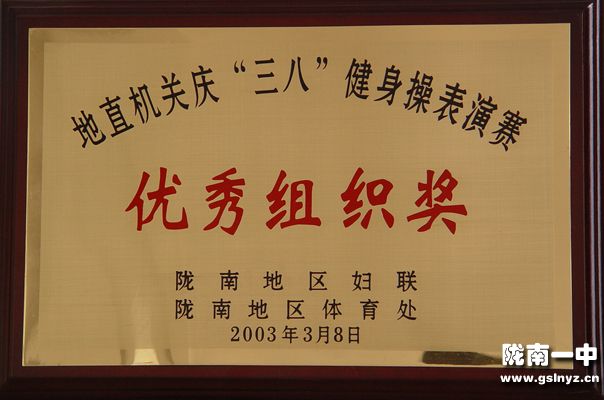 地直机关庆“三八”健身操表演赛
优秀组织奖
陇南地区妇联
陇南地区体育处
2003年3月8日
陇南一中
www.gslnyz.cn